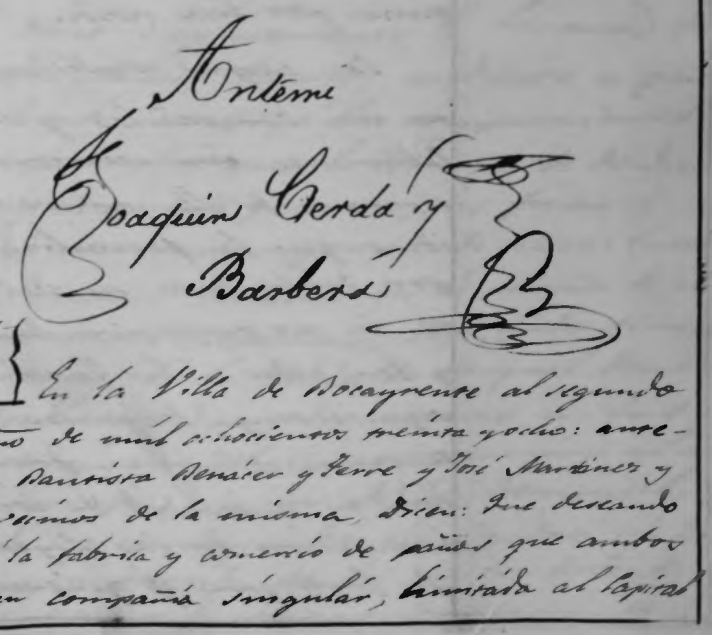 Antemi
Joaquin Cerdá y
Barberá
En la Villa de Bocayrente al segundo
de mil ochocientos treinta y ocho: ante-
Bautista Benácer y Ferre y José Martinez y
vecinos de la misma, Dicen: Que deseando
la fabrica y comercio de paños que ambos
compañia singulár, limitáda al Capitál